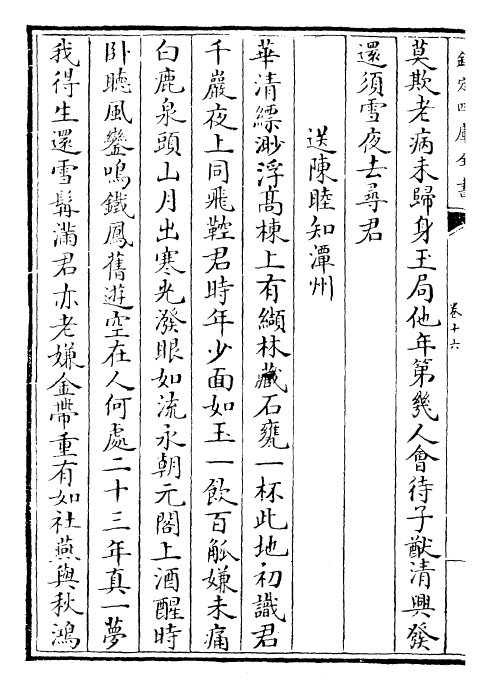 欽定四庫全書
卷十六
莫欺老病未歸身玉局他年第幾人會待子猷清興發
還須雪夜去尋君
送陳睦知潭州
華清縹渺浮高棟上有纈林藏石甕一杯此地初識君
千巖夜上同飛鞚君時年少面如玉一飲百觚嫌未痛
白鹿泉頭山月出寒光潑眼如流汞朝元閣上酒醒時
卧聽風鑾鳴鐵鳳舊遊空在人何處二十三年真一夢
我得生還雪髯滿君亦老嫌金帶重有如社燕與秋鴻